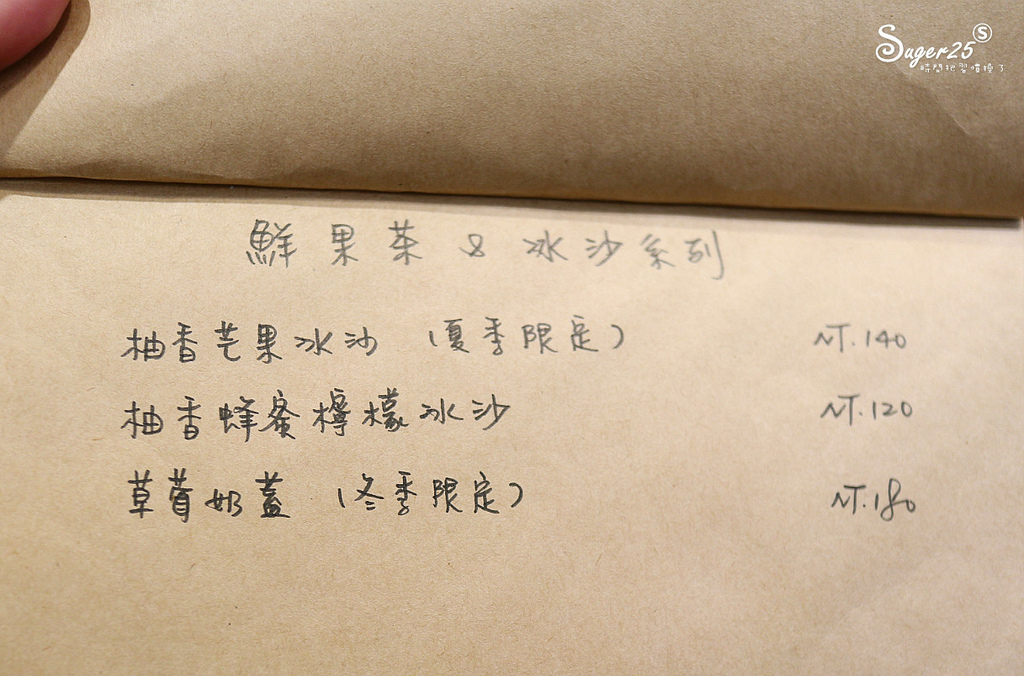 Suger25 S
時間把習慣換了
鮮果茶 & 冰沙系列
柚香芒果冰沙 (夏季限定) NT.140
柚香蜂蜜檸檬冰沙 NT.120
草莓奶蓋 (冬季限定) NT.180